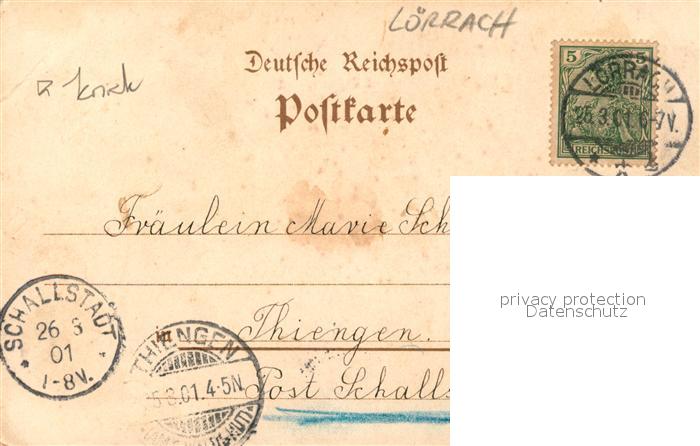 LÖRRACH
Deutsche Reichspost
Postkarte
knick
5 5
REICHSPOST
LÖRRACH
25.3.01.6-7V.
Fräulein Marie Sch
in Thiengen.
Post Schalls
SCHALLSTADT
26 3
01
1-8V.
THIENGEN
5.3.01.4-5N
privacy protection
Datenschutz